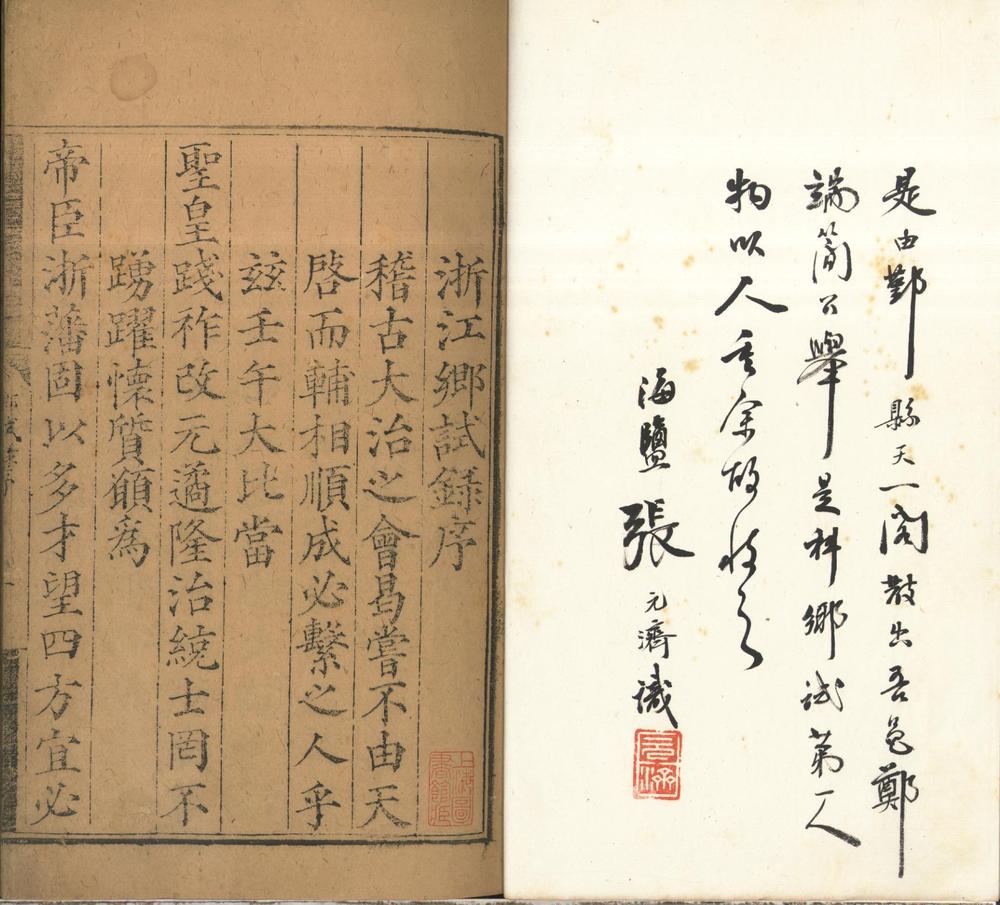 是由鄞縣天一閣散出吾邑鄭
端簡公舉是科鄉試第一人
物以人重余故收之
海鹽張元濟識
元濟
浙江鄉試錄序
稽古大治之會曷嘗不由天
啓而輔相順成必繫之人乎
玆壬午大比當
聖皇踐祚改元遹隆治統士罔不
踴躍懷質願爲
帝臣浙藩固以多才望四方宜必
上海圖書館藏